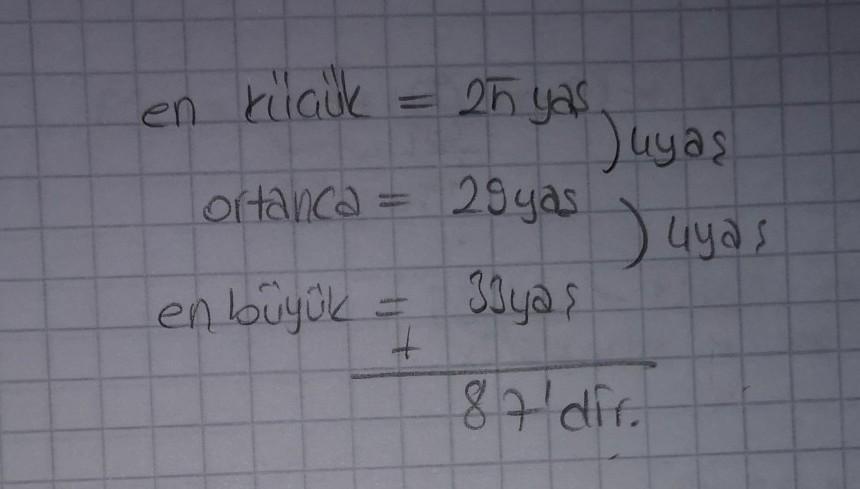 en küçük = 25 yaş
) 4yaş
ortanca = 29yaş
) 4yaş
en büyük = 33yaş
+
87'dir.